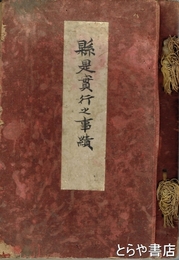 縣是實行之事蹟
とらや書店